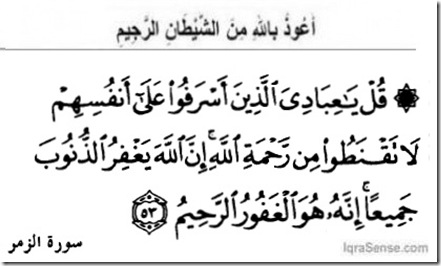 أَعُوذُ بِاللَّهِ مِنَ الشَّيْطَانِ الرَّجِيمِ
۞ قُلْ يَٰعِبَادِىَ ٱلَّذِينَ أَسْرَفُوا۟ عَلَىٰٓ أَنفُسِهِمْ
لَا تَقْنَطُوا۟ مِن رَّحْمَةِ ٱللَّهِ ۚ إِنَّ ٱللَّهَ يَغْفِرُ ٱلذُّنُوبَ
جَمِيعًا ۚ إِنَّهُۥ هُوَ ٱلْغَفُورُ ٱلرَّحِيمُ ٥٣
سورة الزمر
IqraSense.com